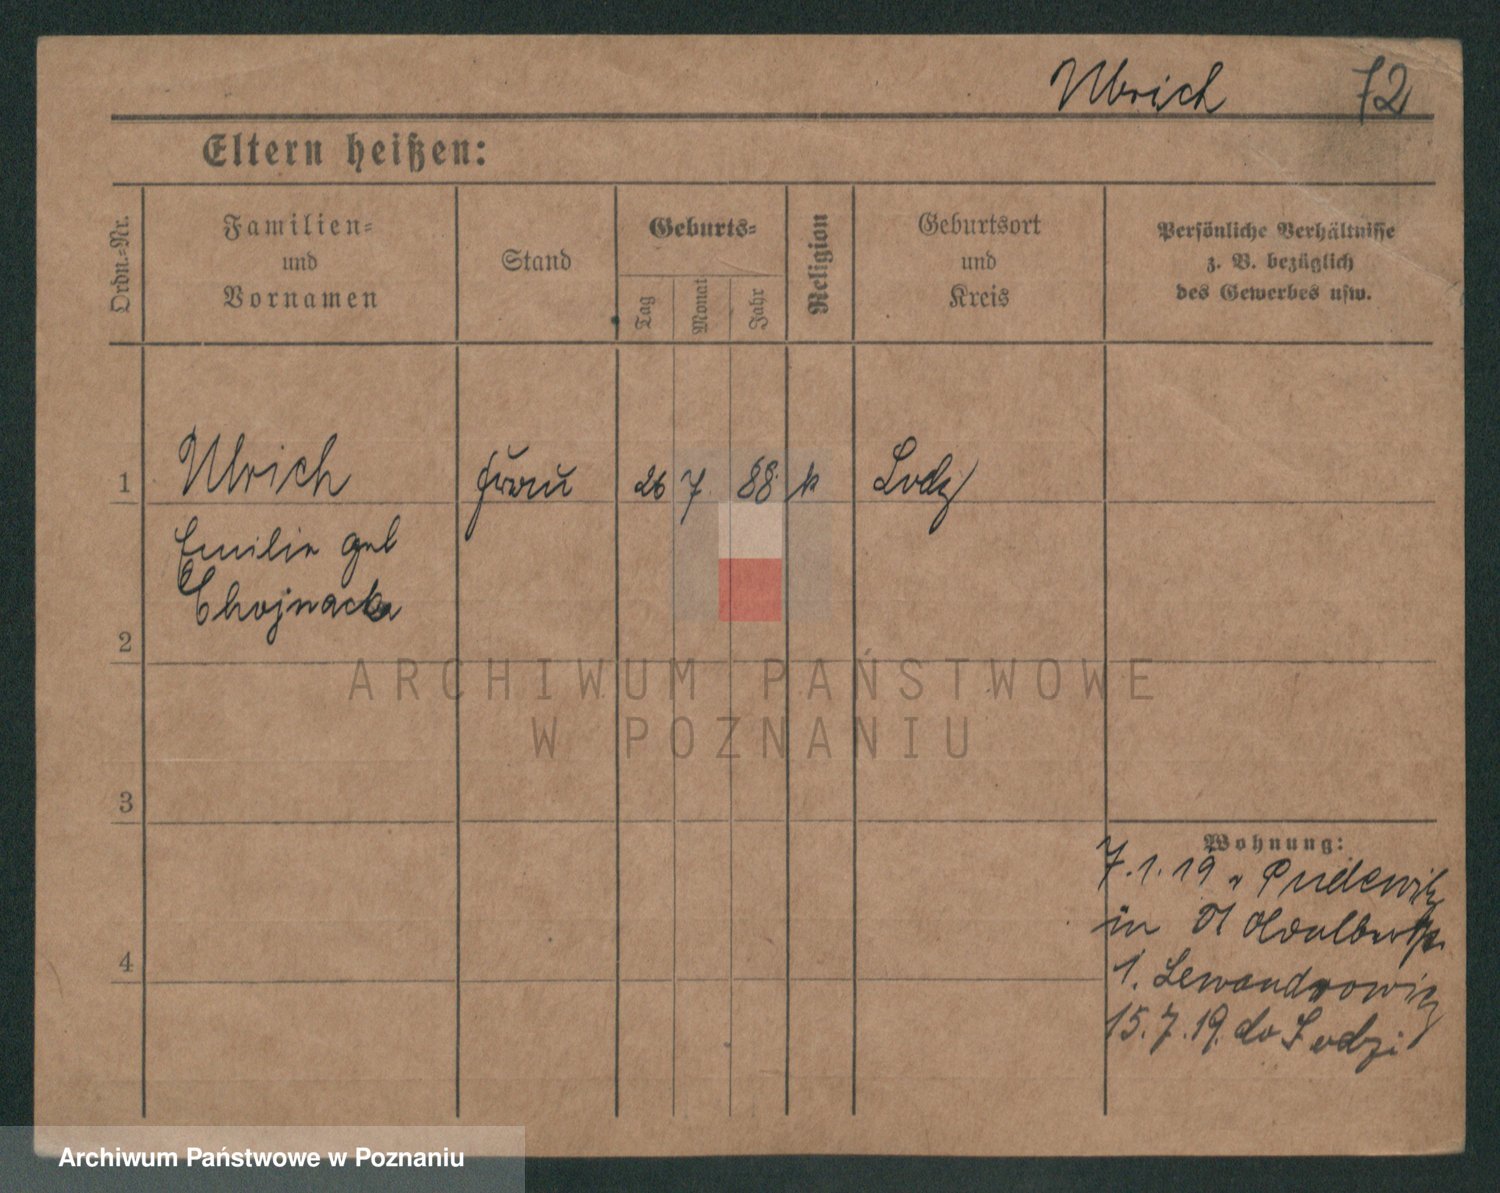 Ulrich 72
Eltern heißen:
Ordn.=Nr.
Familien=
und
Vornamen
Stand
Geburts=
Tag
Monat
Jahr
Religion
Geburtsort
und
Kreis
Persönliche Verhältnisse
z. B. bezüglich
des Gewerbes usw.
1 Ulrich Frau 26 7. 88 k Lodz
Emilie geb
Chojnacka
2
3
4
Wohnung:
7.1.19 v Pudewitz
in
1. Lewandrowicz
15.7.19. do Lodzi
ARCHIWUM PAŃSTWOWE
W POZNANIU
Archiwum Państwowe w Poznaniu